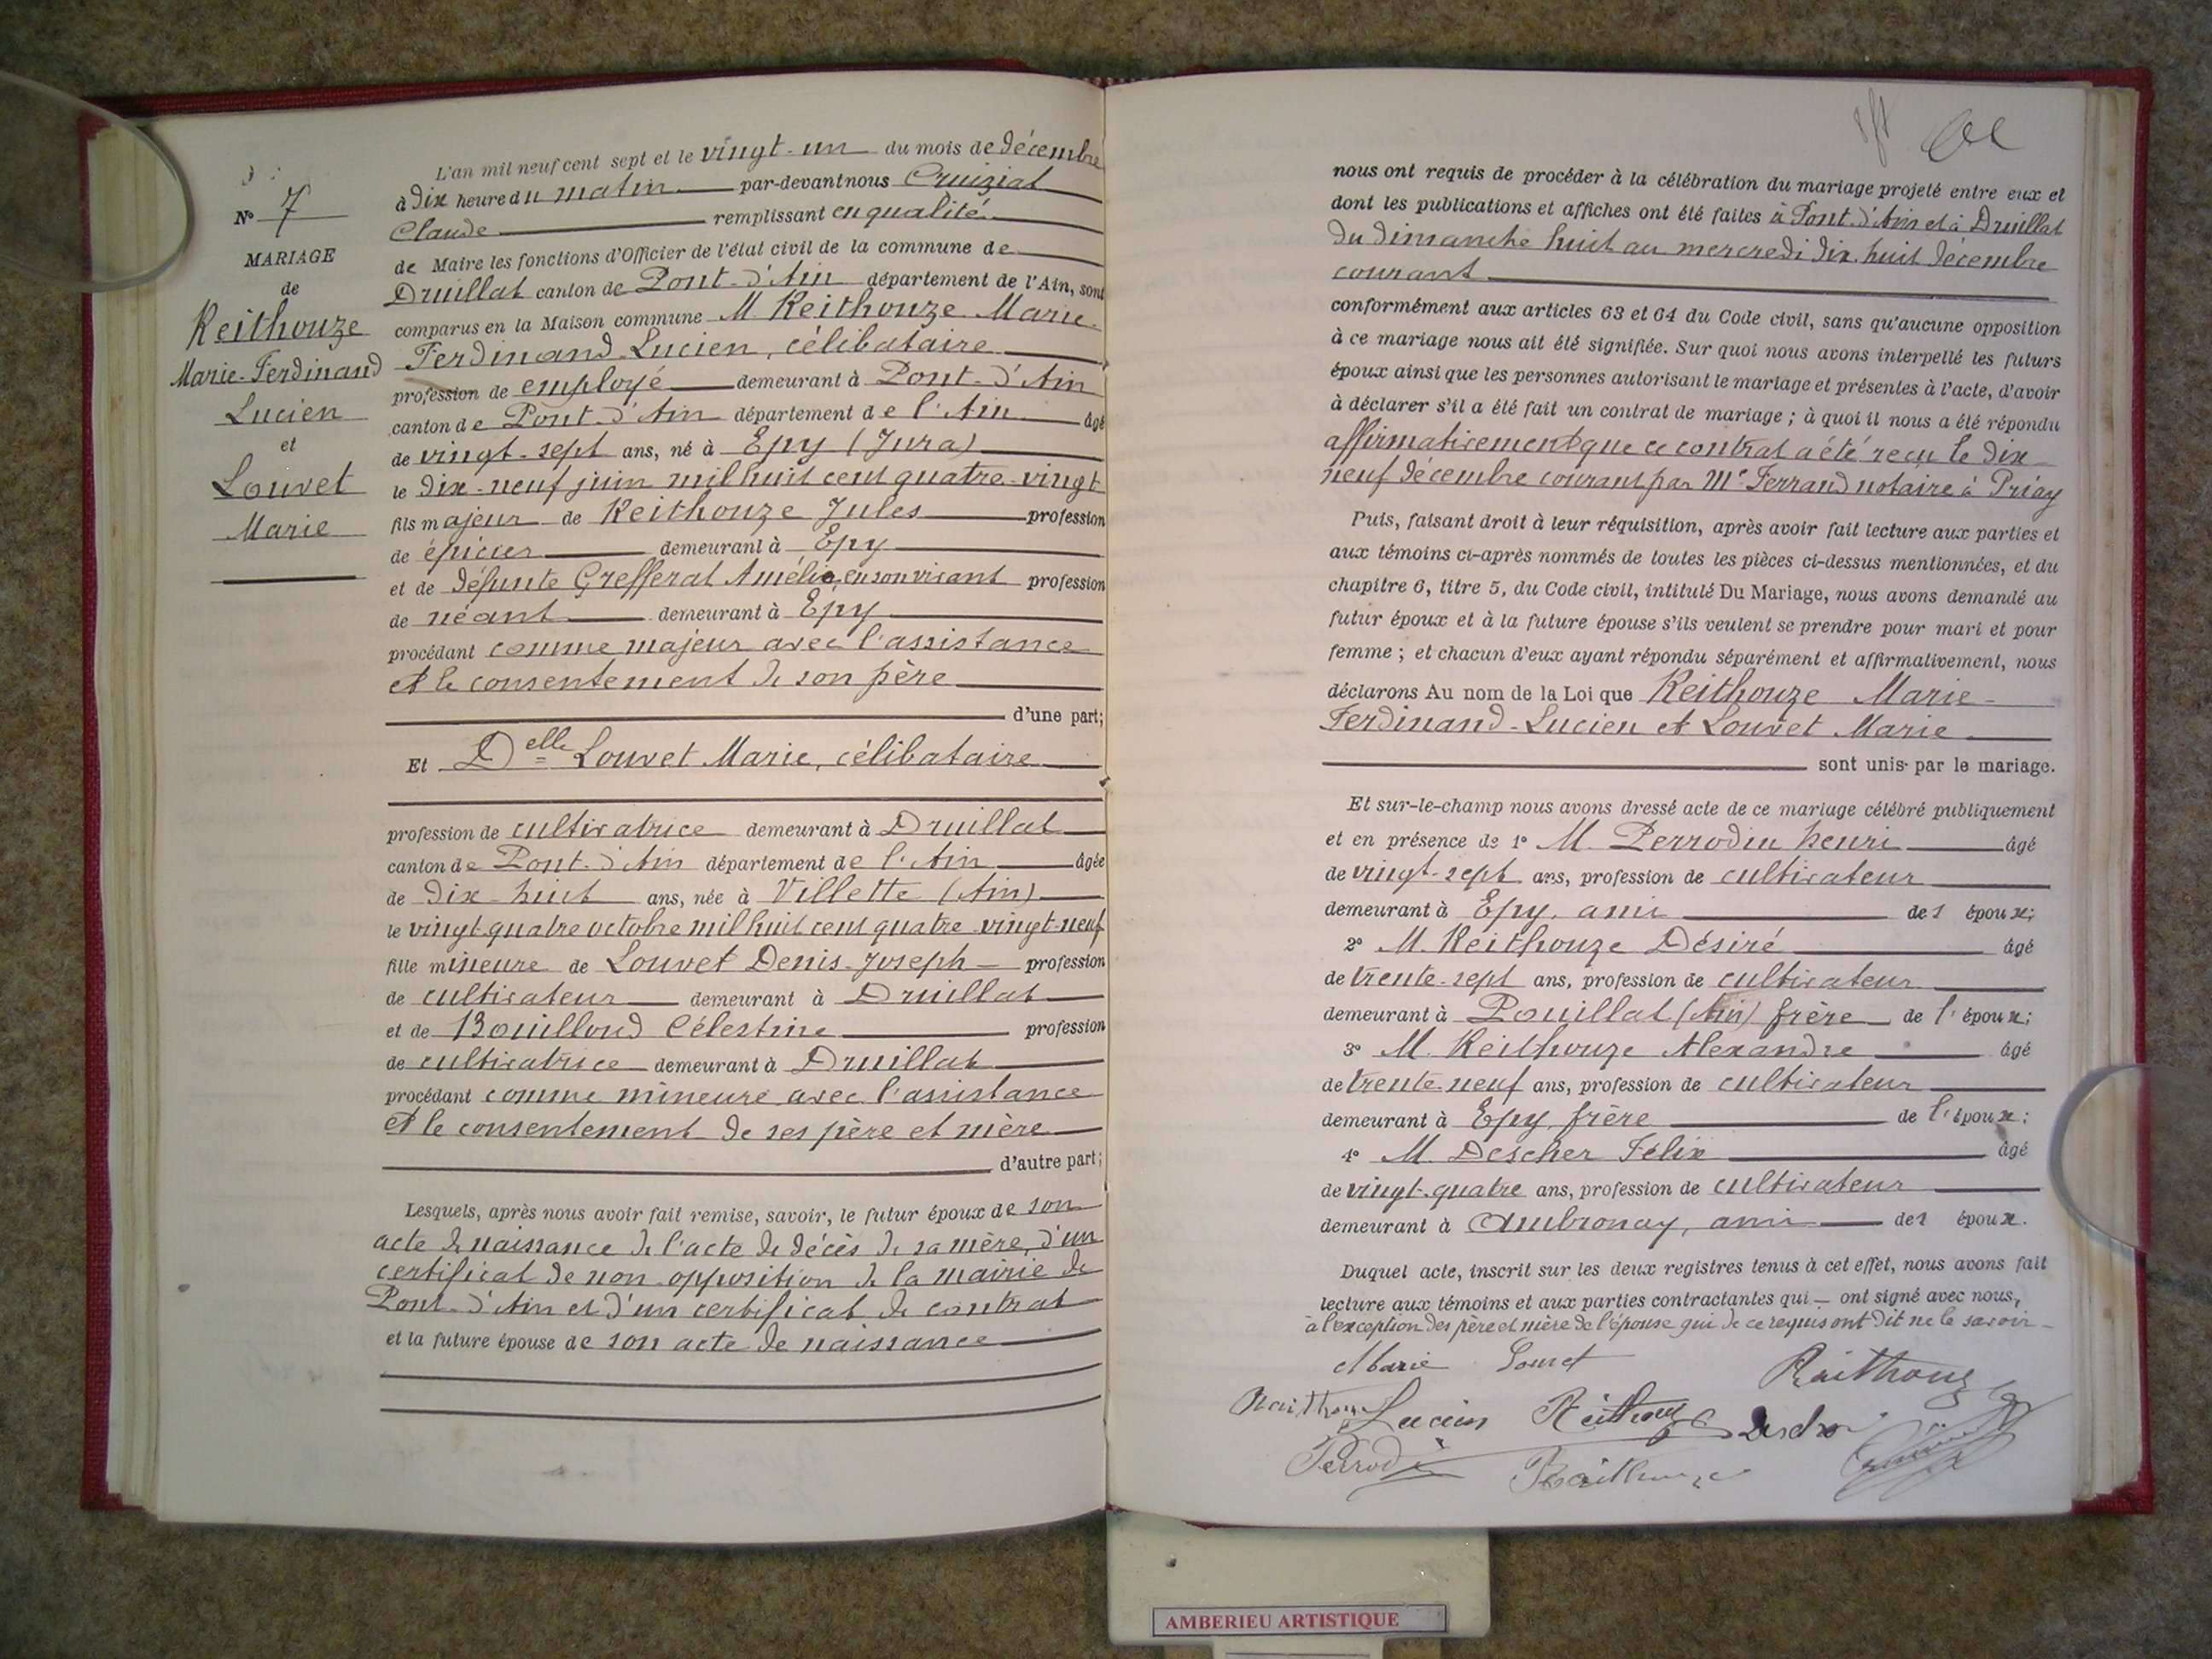 N° 7
MARIAGE
de
Reithouze
Marie-Ferdinand
Lucien
et
Louvet
Marie
L'an mil neuf cent sept et le vingt-un du mois de décembre
à dix heure du matin par-devant nous Cruiziat
Claude remplissant en qualité
de Maire les fonctions d'Officier de l'état civil de la commune de
Druillat canton de Pont-d'Ain département de l'Ain, sont
comparus en la Maison commune M. Reithouze Marie-
Ferdinand-Lucien, célibataire
profession de employé demeurant à Pont-d'Ain
canton de Pont-d'Ain département de l'Ain âgé
de vingt-sept ans, né à Epy (Jura)
le dix-neuf juin mil huit cent quatre-vingt
fils majeur de Reithouze Jules profession
de épicier demeurant à Epy
et de défunte Grefferat Amélie, en son vivant profession
de néant demeurant à Epy
procédant comme majeur avec l'assistance
et le consentement de son père
d'une part;
Et Delle Louvet Marie, célibataire
profession de cultivatrice demeurant à Druillat
canton de Pont-d'Ain département de l'Ain âgée
de dix-huit ans, née à Villette (Ain)
le vingt-quatre octobre mil huit cent quatre-vingt-neuf
fille mineure de Louvet Denis-Joseph profession
de cultivateur demeurant à Druillat
et de Bouilloud Célestine profession
de cultivatrice demeurant à Druillat
procédant comme mineure avec l'assistance
et le consentement de ses père et mère
d'autre part;
Lesquels, après nous avoir fait remise, savoir, le futur époux de son
acte de naissance de l'acte de décès de sa mère, d'un
certificat de non-opposition de la mairie de
Pont-d'Ain et d'un certificat de contrat
et la future épouse de son acte de naissance
nous ont requis de procéder à la célébration du mariage projeté entre eux et
dont les publications et affiches ont été faites à Pont-d'Ain et à Druillat
du dimanche huit au mercredi dix-huit décembre
courant
conformément aux articles 63 et 64 du Code civil, sans qu'aucune opposition
à ce mariage nous ait été signifiée. Sur quoi nous avons interpellé les futurs
époux ainsi que les personnes autorisant le mariage et présentes à l'acte, d'avoir
à déclarer s'il a été fait un contrat de mariage ; à quoi il nous a été répondu
affirmativement que ce contrat a été reçu le dix
neuf décembre courant par Me Ferrand notaire à Priay
Puis, faisant droit à leur réquisition, après avoir fait lecture aux parties et
aux témoins ci-après nommés de toutes les pièces ci-dessus mentionnées, et du
chapitre 6, titre 5, du Code civil, intitulé Du Mariage, nous avons demandé au
futur époux et à la future épouse s'ils veulent se prendre pour mari et pour
femme ; et chacun d'eux ayant répondu séparément et affirmativement, nous
déclarons Au nom de la Loi que Reithouze Marie-
Ferdinand-Lucien et Louvet Marie
sont unis par le mariage.
Et sur-le-champ nous avons dressé acte de ce mariage célébré publiquement
et en présence de 1° M. Perrodin henri âgé
de vingt-sept ans, profession de cultivateur
demeurant à Epy, ami des époux;
2° M. Reithouze Désiré âgé
de trente-sept ans, profession de cultivateur
demeurant à Pouillat (Ain) frère de l'époux;
3° M. Reithouze Alexandre âgé
de trente-neuf ans, profession de cultivateur
demeurant à Epy, frère de l'époux;
4° M. Descher Félix âgé
de vingt-quatre ans, profession de cultivateur
demeurant à Ambronay, ami des époux.
Duquel acte, inscrit sur les deux registres tenus à cet effet, nous avons fait
lecture aux témoins et aux parties contractantes qui ont signé avec nous,
à l'exception des père et mère de l'épouse qui de ce requis ont dit ne le savoir
Marie Louvet Raithouz
Lucien Reithouze
Perrodin
AMBERIEU ARTISTIQUE